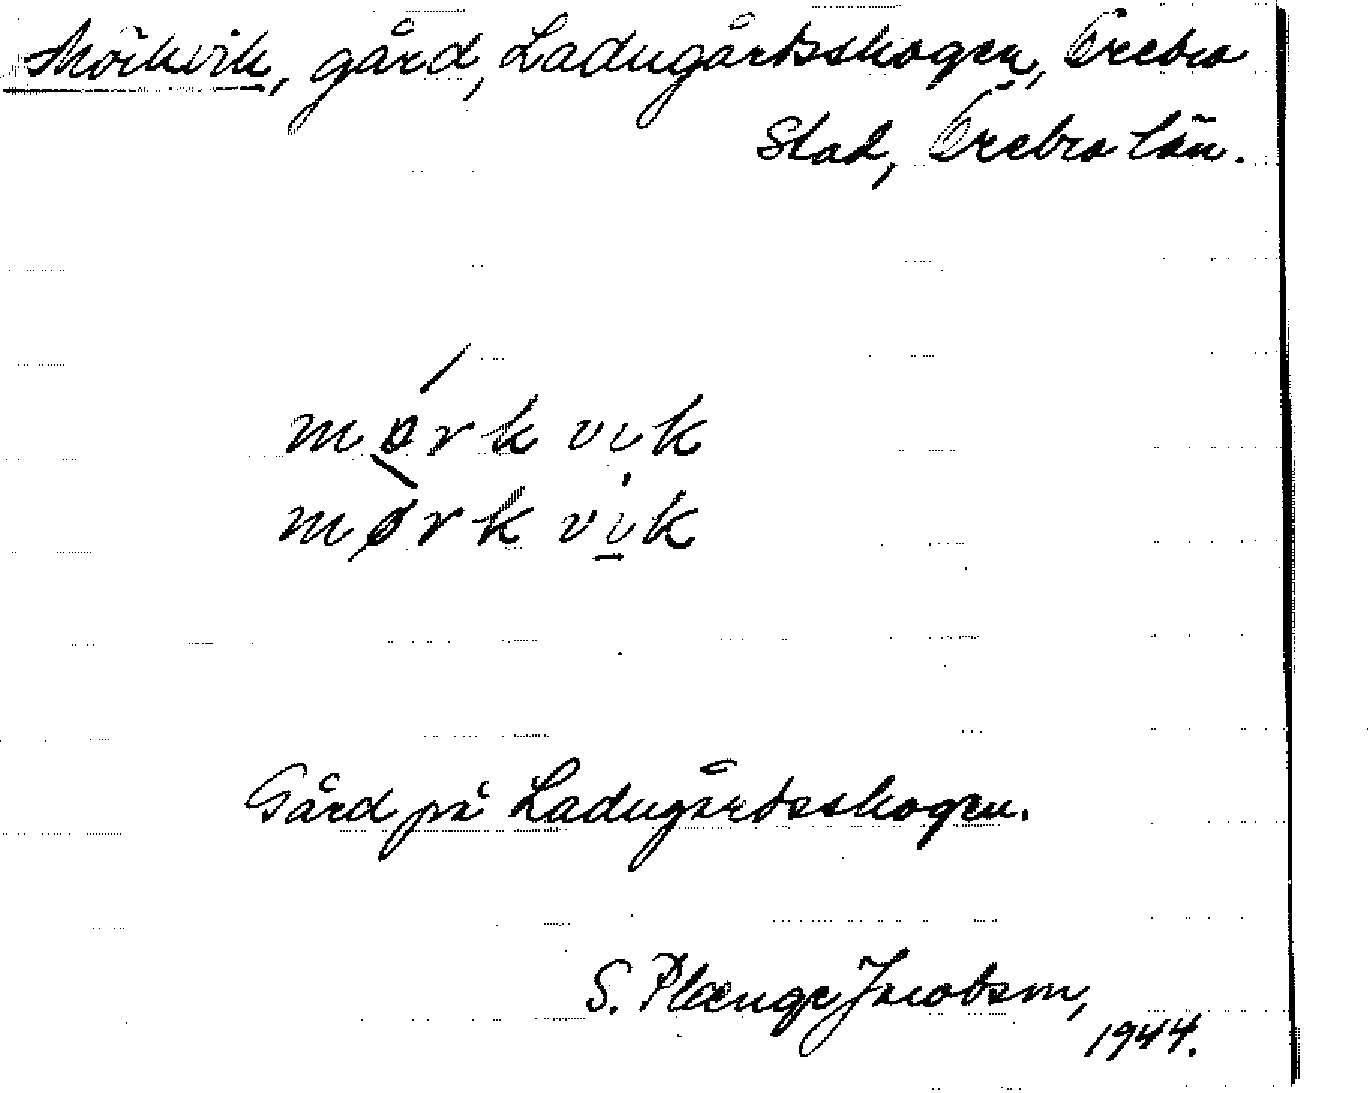 Mörkvik, gård, Ladugårdsskogen, Örebro
Stad, Örebro län.
mørkvik
mørkvik
Gård på Ladugårdsskogen.
S. Plænge Jacobson,
1944.